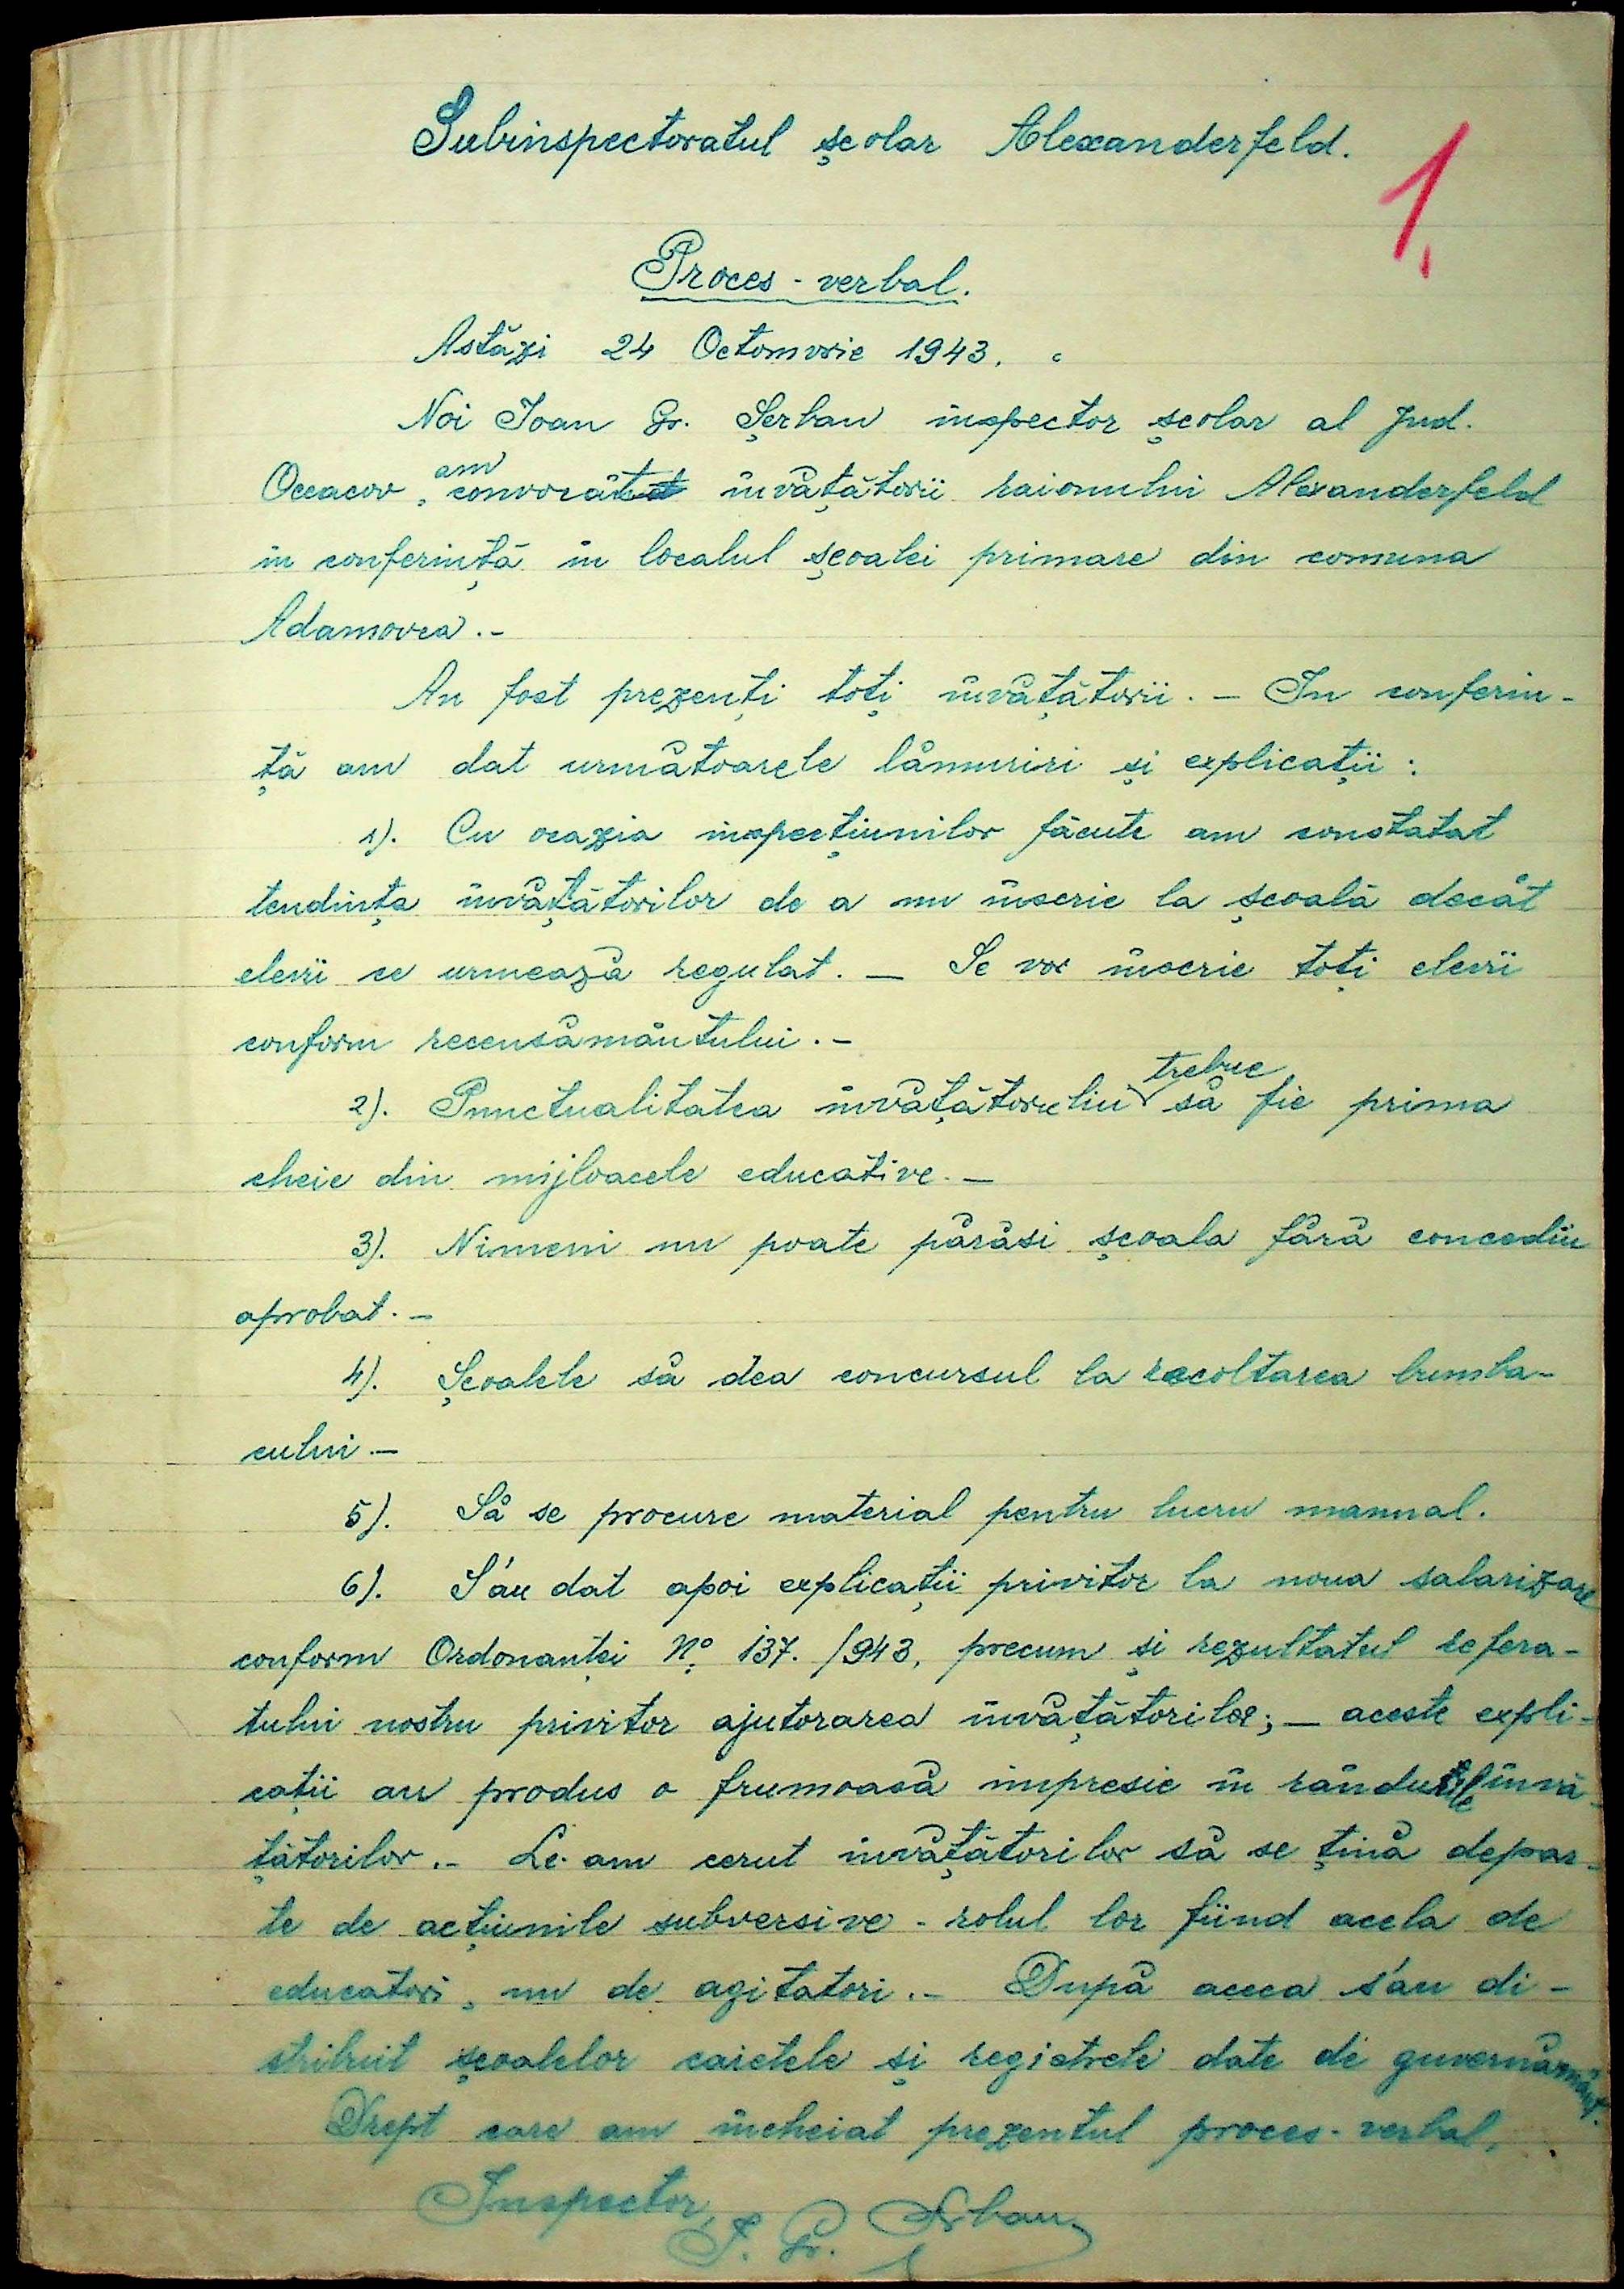 Subinspectoratul școlar Alexanderfeld.
1.
Proces-verbal.
Astăzi 24 Octomvrie 1943.
Noi Ioan Gr. Șerban inspector școlar al jud.
am
Oceacov, convocat învățătorii raionului Alexanderfeld
in conferință in localul școalei primare din comuna
Adamovca.-
Au fost prezenți toți învățătorii.- In conferin-
ță am dat următoarele lămuriri și explicații:
1). Cu ocazia inspecțiunilor făcute am constatat
tendința învățătorilor de a nu înscrie la școală decât
elevii ce urmează regulat.- Se vor înscrie toți elevii
conform recensământului.-
trebue
2). Punctualitatea învățătorului să fie prima
cheie din mijloacele educative.-
3). Nimeni nu poate părăsi școala fără concediu
aprobat.-
4). Școalele să dea concursul la recoltarea bumba-
cului.-
5). Să se procure material pentru lucru manual.
6). S'au dat apoi explicații privitor la noua salarizare
conform Ordonanței No. 137./943, precum și rezultatul refera-
tului nostru privitor ajutorarea învățătorilor;- aceste expli-
cații au produs o frumoasă impresie în rândurile învă-
țătorilor.- Le-am cerut învățătorilor să se țină depar-
te de acțiunile subversive - rolul lor fiind acela de
educatori, nu de agitatori.- După aceea s'au di-
stribuit școalelor caietele și registrele date de guvernământ.
Drept care am încheiat prezentul proces-verbal,
Inspector,
I. Gr. Șerban